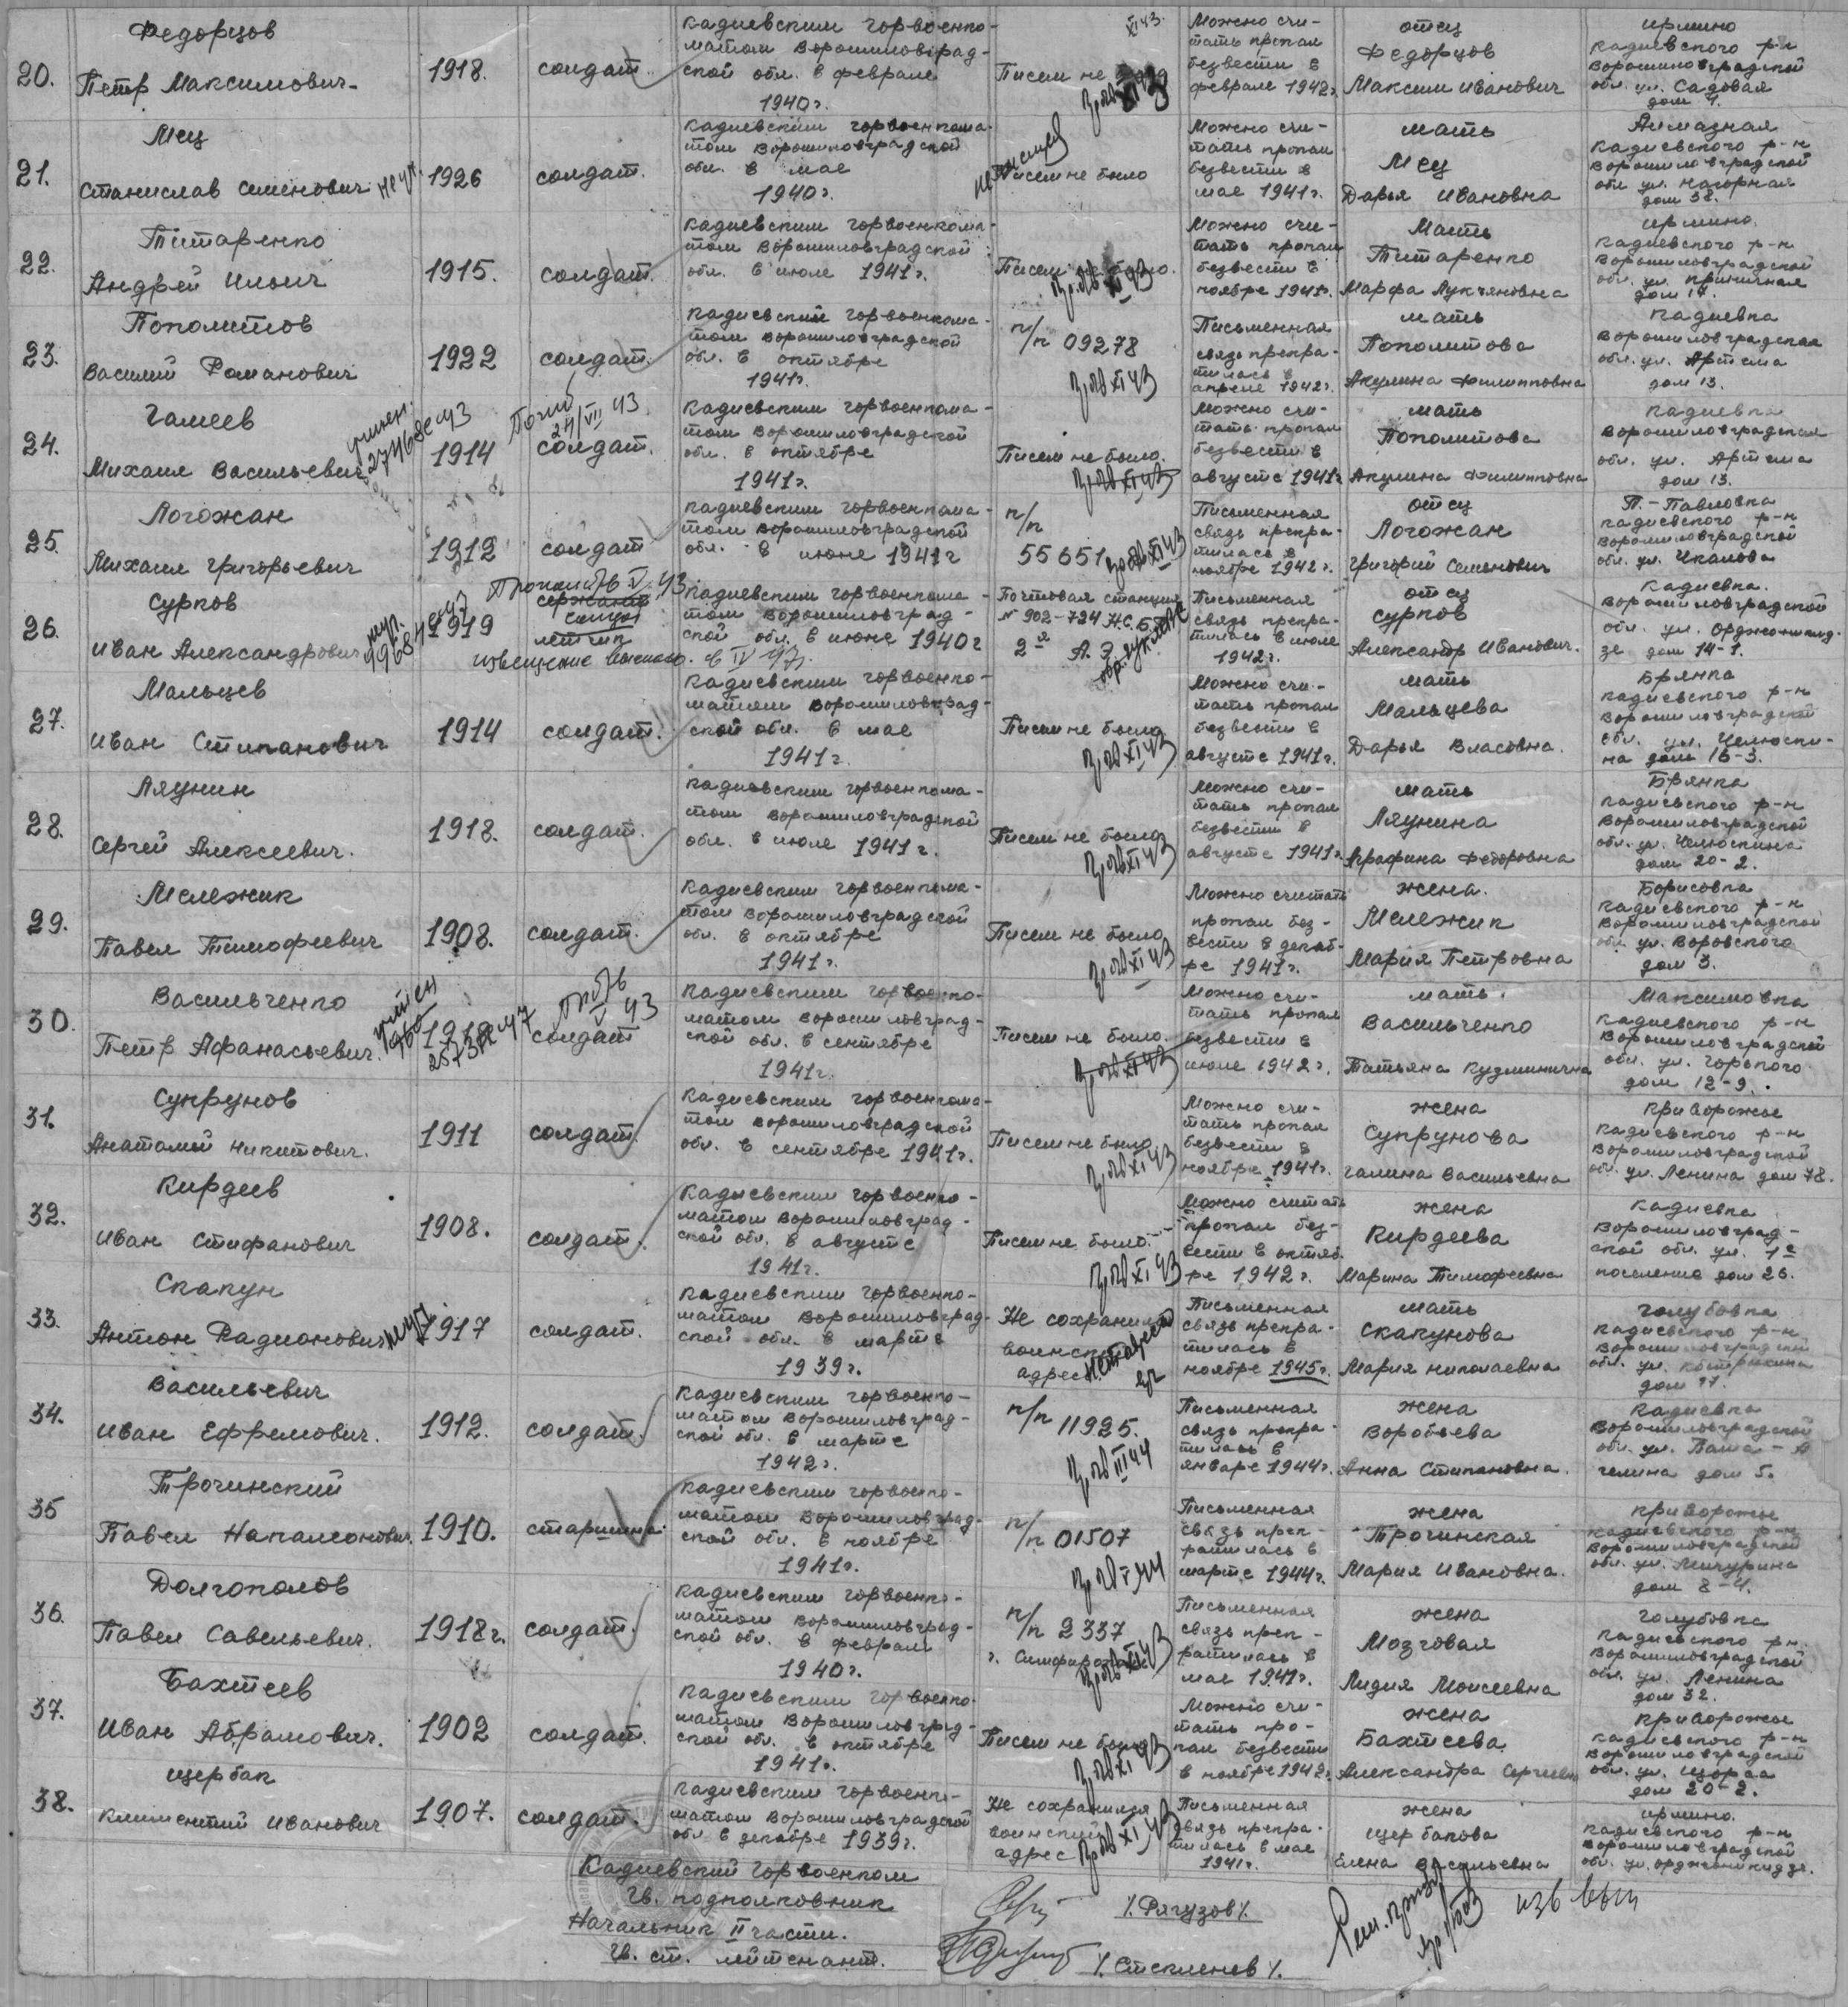 20. Федорцов
Петр Максимович
1918.
солдат.
Кадиевским горвоенко-
матом Ворошиловград-
ской обл. в феврале
1940г.
Писем не
XI 43.
Можно счи-
тать пропал
безвести в
феврале 1942г.
отец
Федорцов
Максим Иванович
Ирмино
Кадиевского р-н
Ворошиловградской
обл. ул. Садовая
дом 4.
21. Мец
Станислав Семенович
1926
солдат.
Кадиевским горвоенкома-
том Ворошиловградской
обл. в мае
1940г.
Писем не было
Можно счи-
тать пропал
безвести в
мае 1941г.
мать
Мец
Дарья Ивановна
Алмазная
Кадиевского р-н
Ворошиловградской
обл ул. Нагорная
дом 38.
22. Титаренко
Андрей Ильич
1915.
солдат.
Кадиевским горвоенкома-
том Ворошиловградской
обл. в июле 1941г.
Писем не было.
Можно счи-
тать пропал
безвести в
ноябре 1941г.
Мать
Титаренко
Марфа Лукьяновна
Ирмино.
Кадиевского р-н
Ворошиловградской
обл. ул.
дом 14.
23. Пополитов
Василий Романович
1922
солдат.
Кадиевский горвоенкома-
том Ворошиловградской
обл. в октябре
1941г.
п/п 09278
Письменная
связь прекра-
тилась в
апреле 1942г.
мать
Пополитова
Акулина Филипповна
Кадиевка
Ворошиловградская
обл. ул. Артема
дом 13.
24. Галеев
Михаил Васильевич
1914
Погиб
24/VII 43
солдат.
Кадиевским горвоенкома-
том Ворошиловградской
обл. в октябре
1941г.
Писем не было.
Можно счи-
тать пропал
безвести в
августе 1941г.
мать
Пополитова
Акулина Филипповна
Кадиевка
Ворошиловградская
обл. ул. Артема
дом 13.
25. Логожан
Михаил Григорьевич
1912
солдат
Кадиевским горвоенкома-
том Ворошиловградской
обл. в июне 1941г
п/п
55651
Письменная
связь прекра-
тилась в
ноябре 1942г.
отец
Логожан
Григорий Семенович
П.-Павловка
Кадиевского р-н
Ворошиловградской
обл. ул. Чкалова
26. Сурков
Иван Александрович
1919
летчик
Кадиевским горвоенкома-
том Ворошиловград-
ской обл. в июне 1940г
Почтовая станция
№ 902-724
2я А.Э.
Письменная
связь прекра-
тилась в июле
1942г.
отец
Сурков
Александр Иванович.
Кадиевка.
Ворошиловградской
обл. ул. Орджоникид-
зе дом 14-1.
27. Мальцев
Иван Стипанович
1914
солдат.
Кадиевским горвоенко-
матом Ворошиловград-
ской обл. в мае
1941г.
Писем не было
Можно счи-
тать пропал
безвести в
августе 1941г.
мать
Мальцева
Дарья Власовна.
Брянка
Кадиевского р-н
Ворошиловградской
обл. ул. Челюски-
на дом 16-3.
28. Ляунин
Сергей Алексеевич.
1918.
солдат.
Кадиевским горвоенкома-
том Ворошиловградской
обл. в июле 1941г.
Писем не было
Можно счи-
тать пропал
безвести в
августе 1941г.
мать
Ляунина
Аграфина Федоровна
Брянка
Кадиевского р-н
Ворошиловградской
обл. ул. Челюскина
дом 20-2.
29. Мележик
Павел Тимофеевич
1908.
солдат.
Кадиевским горвоенкома-
том Ворошиловградской
обл. в октябре
1941г.
Писем не было
Можно считать
пропал без-
вести в декаб-
ре 1941г.
жена.
Мележик
Мария Петровна
Борисовка
Кадиевского р-н
Ворошиловградской
обл. ул. Воровского
дом 3.
30. Васильченко
Петр Афанасьевич.
1918
солдат
Кадиевским горвоенко-
матом Ворошиловград-
ской обл. в сентябре
1941г.
Писем не было.
Можно счи-
тать пропал
безвести в
июле 1942г.
мать.
Васильченко
Татьяна Кузминична
Максимовка
Кадиевского р-н
Ворошиловградской
обл. ул. Горького
дом 12-9.
31. Супрунов
Анатолий Никитович.
1911
солдат.
Кадиевским горвоенкома-
том Ворошиловградской
обл. в сентябре 1941г.
Писем не было.
Можно счи-
тать пропал
безвести в
ноябре 1941г.
жена
Супрунова
Галина Васильевна
Криворожье
Кадиевского р-н
Ворошиловградской
обл. ул. Ленина дом 78.
32. Кирдеев
Иван Стифанович
1908.
солдат.
Кадиевским горвоенко-
матом Ворошиловград-
ской обл. в августе
1941г.
Писем не было.
Можно считать
пропал без-
вести в октяб-
ре 1942г.
жена
Кирдеева
Марина Тимофеевна
Кадиевка
Ворошиловград-
ской обл. ул. 1е
поселение дом 26.
33. Скакун
Антон Радионович
1917
солдат.
Кадиевским горвоенко-
матом Ворошиловград-
ской обл. в марте
1939г.
Не сохранился
воинский
адрес.
Письменная
связь прекра-
тилась в
ноябре 1945г.
мать
Скакунова
Мария Николаевна
Голубовка
Кадиевского р-н
Ворошиловградской
обл. ул.
34. Васильевич
Иван Ефремович.
1912.
солдат.
Кадиевским горвоенко-
матом Ворошиловград-
ской обл. в марте
1942г.
п/п 11925.
Письменная
связь прекра-
тилась в
январе 1944г.
жена
Воробьева
Анна Стипановна.
Кадиевка
Ворошиловградской
обл. ул. Паша-А
гелина дом 5.
35 Трочинский
Павел Напалеонович.
1910.
старшина.
Кадиевским горвоенко-
матом Ворошиловград-
ской обл. в ноябре
1941г.
п/п 01507
Письменная
связь прек-
ратилась в
марте 1944г.
жена
Трочинская
Мария Ивановна.
Криворожье
Кадиевского р-н
Ворошиловградской
обл. ул. Мичурина
дом 8-4.
36. Долгополов
Павел Савельевич.
1918г.
солдат.
Кадиевским горвоенко-
матом Ворошиловград-
ской обл. в феврале
1940г.
п/п 2337
г. Симферополь
Письменная
связь прек-
ратилась в
мае 1941г.
жена
Мозговая
Лидия Моисеевна
Голубовка
Кадиевского р-н.
Ворошиловградской
обл. ул. Ленина
дом 32.
37. Бахтеев
Иван Абрамович.
1902
солдат.
Кадиевским горвоенко-
матом Ворошиловград-
ской обл. в октябре
1941г.
Писем не было
Можно счи-
тать про-
пал безвести
в ноябре 1942г.
жена
Бахтеева
Александра Сергеевн
Криворожье
Кадиевского р-н
Ворошиловградской
обл. ул. Щорса
дом 20-2.
38. Щербак
Климентий Иванович
1907.
солдат.
Кадиевским горвоенко-
матом Ворошиловградской
обл в декабре 1939г.
Не сохранился
воинский
адрес
Письменная
связь прекра-
тилась в мае
1941г.
жена
Щербакова
Елена Васильевна
Ирмино.
Кадиевского р-н
Ворошиловградской
обл. ул. Орджоникидзе.
Кадиевский горвоенком
гв. подполковник
/.Рягузов/.
Начальник II части.
гв. ст. лейтенант.
/.Стекленев/.
изв выс